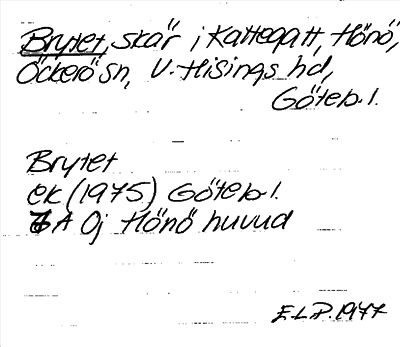 Brytet, skär i Kattegatt, Hönö,
Öckerö sn, V. Hisings hd,
Göteb. l.
Brytet
ek (1975) Göteb. l.
7A Oj Hönö huvud
E.L.P. 1977